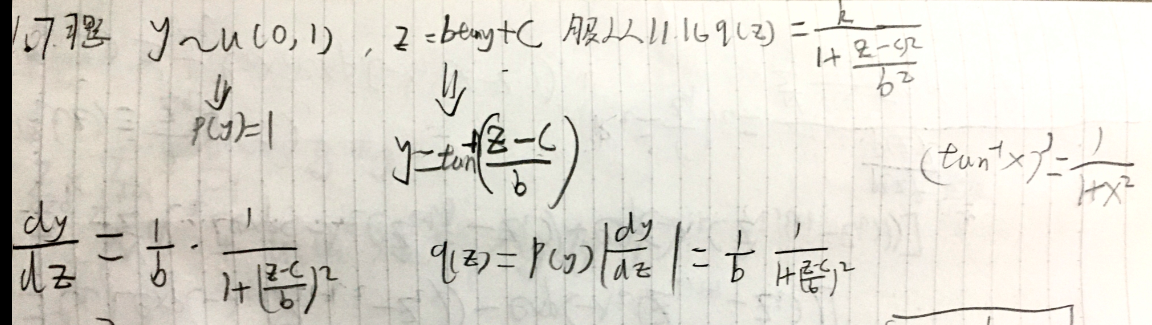 习题 y~u(0,1), z=btany+c 服从11.16 q(z)=k/(1+(z-c)²/b²)
⇓ ⇓
p(y)=1 y=tan⁻¹((z-c)/b) (tan⁻¹x)'=1/(1+x²)
dy/dz = 1/b · 1/(1+((z-c)/b)²) q(z)=p(y)|dy/dz|=1/b 1/(1+((z-c)/b)²)